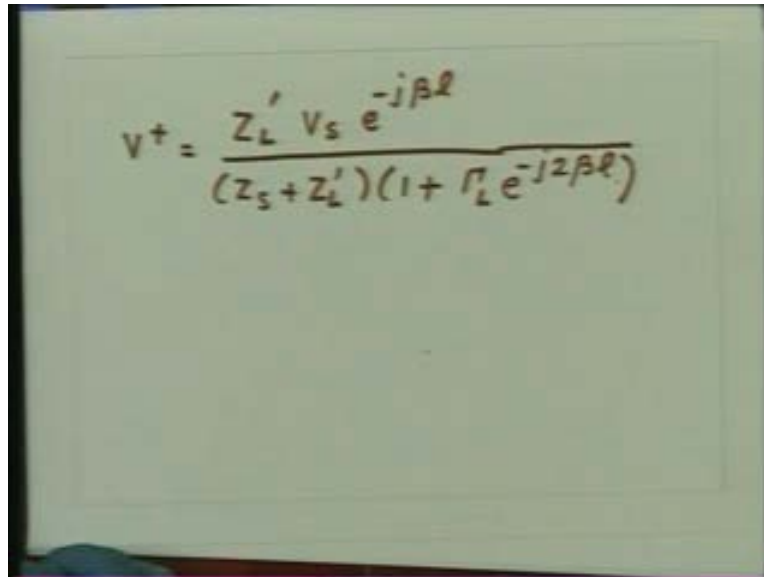 V⁺ = Z_L′ V_S e^{-jβl} / (Z_S + Z_L′)(1 + Γ_L e^{-j2βl})